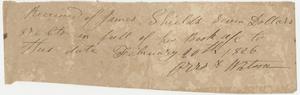 Received of James Shields Seven Dollars
in full of his Book a/c to
this date February 20th 1826
Watson